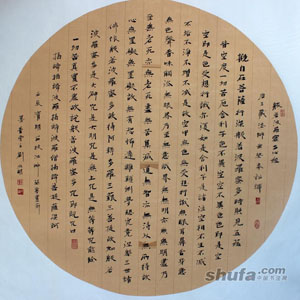 般若波羅蜜多心經
觀自在菩薩行深般若波羅蜜多時照見五蘊
皆空度一切苦厄舍利子色不異空空不異色色即是空
空即是色受想行識亦復如是舍利子是諸法空相不生不滅
不垢不淨不增不減是故空中無色無受想行識無眼耳鼻舌身意
無色聲香味觸法無眼界乃至無意識界無無明亦無無明盡乃
至無老死亦無老死盡無苦集滅道無智亦無得以無所得故
無罣礙無罣礙故無有恐怖遠離顛倒夢想究竟涅槃三世諸
佛依般若波羅蜜多故得阿耨多羅三藐三菩提故知般若
波羅蜜多是大神咒是大明咒是無上咒是無等等咒能除
一切苦真實不虛故說般若波羅蜜多咒即說咒曰
揭諦揭諦波羅揭諦波羅僧揭諦菩提薩婆訶
shufa.com